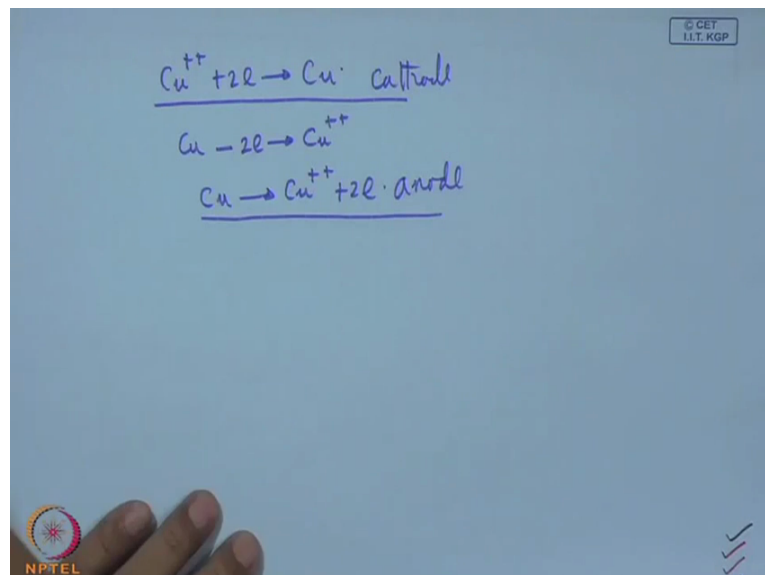 © CET
I.I.T. KGP
Cu++ +2e → Cu· Cathode
Cu − 2e → Cu++
Cu → Cu++ +2e· anode
NPTEL